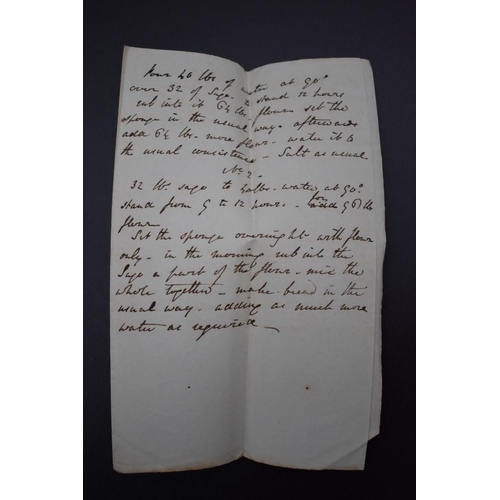 Pour 40 lbs of water at 90°
over 32 of Sago to stand 12 hours
rub into it 6½ lbs. flour set the
sponge in the usual way. afterwards
add 6½ lbs. more flour. water it to
the usual consistence. Salt as usual
No 2.
32 lbs sago to lbs. water at 90°.
stand from 9 to 12 hours. add lb
flour
Set the sponge overnight with flour
only. in the morning rub into the
Sago a part of the flour. mix the
whole together. make bread in the
usual way. adding as much more
water as required —